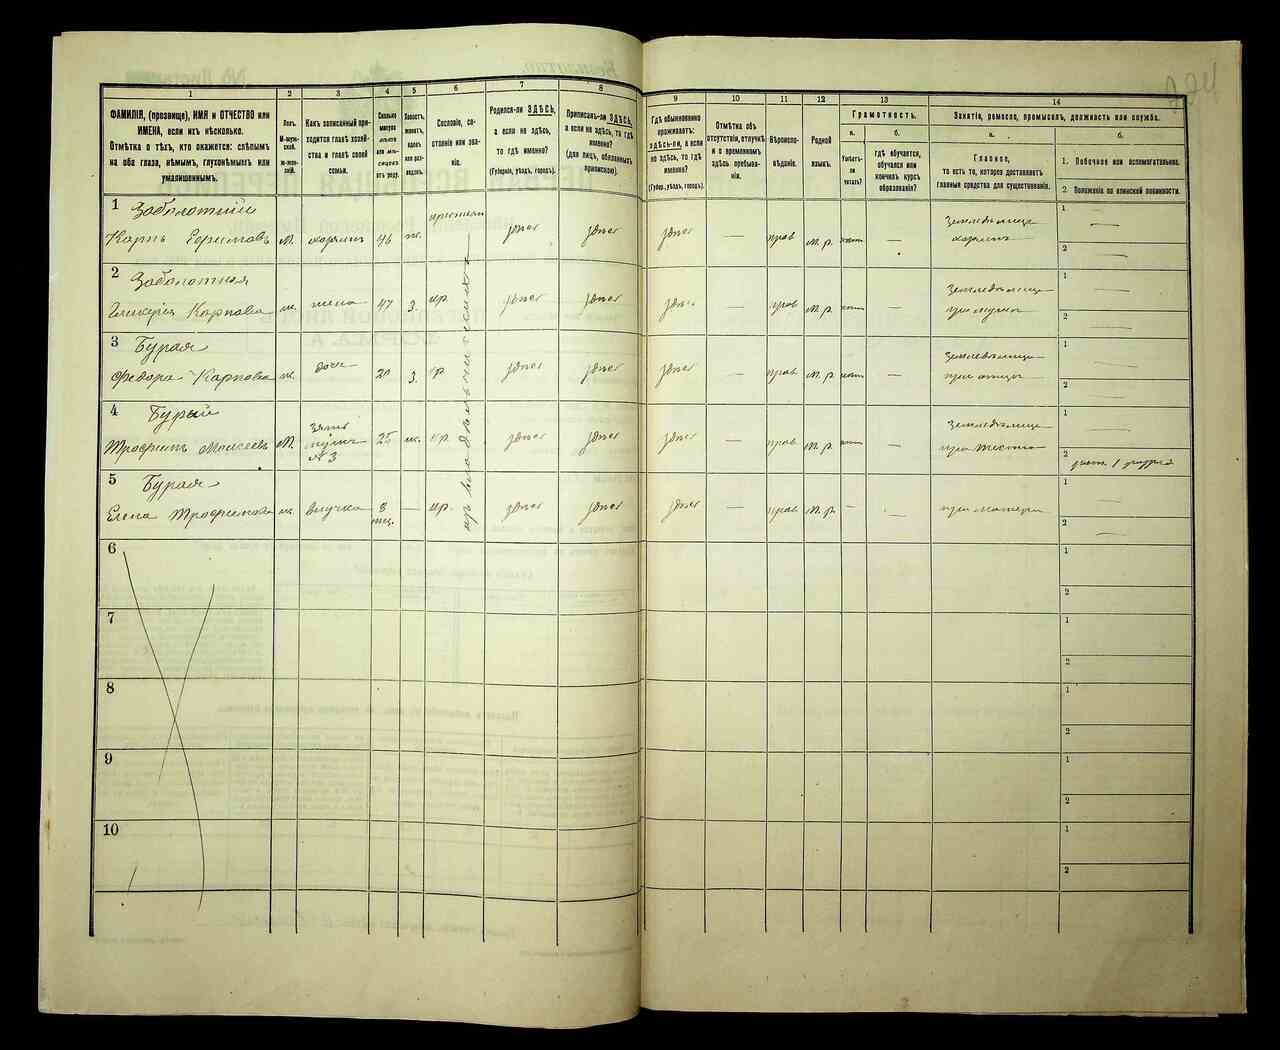 204
1
2
3
4
5
6
7
8
9
10
11
12
13
14
ФАМИЛІЯ, (прозвище), ИМЯ и ОТЧЕСТВО или
ИМЕНА, если ихъ нѣсколько.
Отмѣтка о тѣхъ, кто окажется: слѣпымъ
на оба глаза, нѣмымъ, глухонѣмымъ или
умалишеннымъ.
Полъ.
М-муж-
ской.
Ж-жен-
скій.
Какъ записанный при-
ходится главѣ хозяй-
ства и главѣ своей
семьи.
Сколько
минуло
лѣтъ
или мѣ-
сяцевъ
отъ роду.
Холостъ,
женатъ,
вдовъ
или раз-
веденъ.
Сословіе, со-
стояніе или зва-
ніе.
Родился-ли ЗДѢСЬ,
а если не здѣсь,
то гдѣ именно?
(Губернія, уѣздъ, городъ).
Приписанъ-ли ЗДѢСЬ,
а если не здѣсь, то гдѣ
именно?
(для лицъ, обязанныхъ
припискою).
Гдѣ обыкновенно
проживаетъ:
здѣсь-ли, а если
не здѣсь, то гдѣ
именно?
(Губер., уѣздъ, городъ).
Отмѣтка объ
отсутствіи, отлучкѣ
и о временномъ
здѣсь пребыва-
ніи.
Вѣроиспо-
вѣданіе.
Родной
языкъ.
Грамотность.
а.
б.
Умѣетъ-
ли
читать?
гдѣ обучается,
обучался или
кончилъ курсъ
образованія?
Занятіе, ремесло, промыселъ, должность или служба.
а.
б.
Главное,
то есть то, которое доставляетъ
главныя средства для существованія.
1. Побочное или вспомогательное.
2. Положеніе по воинской повинности.
1 Заболотній
Карпъ Ефимовъ М. хозяинъ 46 ж. здѣсь здѣсь здѣсь — прав м. р. —
Земледѣлецъ
хозяинъ
1 —
2 —
2 Заболотная
Гликерія Карпова ж. жена 47 з. кр. здѣсь здѣсь здѣсь — прав м. р. —
Земледѣлица
при мужѣ
1 —
2 —
3 Бурая
Федора Карпова ж. дочь 20 з. кр. здѣсь здѣсь здѣсь — прав м. р. —
Земледѣлица
при отцѣ
1 —
2 —
4 Бурый
Трофимъ Моисеевъ М. зять
мужъ
№ 3
25 ж. кр. здѣсь здѣсь здѣсь — прав м. р. —
Земледѣлецъ
при тестѣ
1 —
2 ратн. 1 разряд
5 Бурая
Елена Трофимова ж. внучка 8
мц.
— кр. здѣсь здѣсь здѣсь — прав м. р. — —
при матери
1 —
2 —
6
1
2
7
1
2
8
1
2
9
1
2
10
1
2